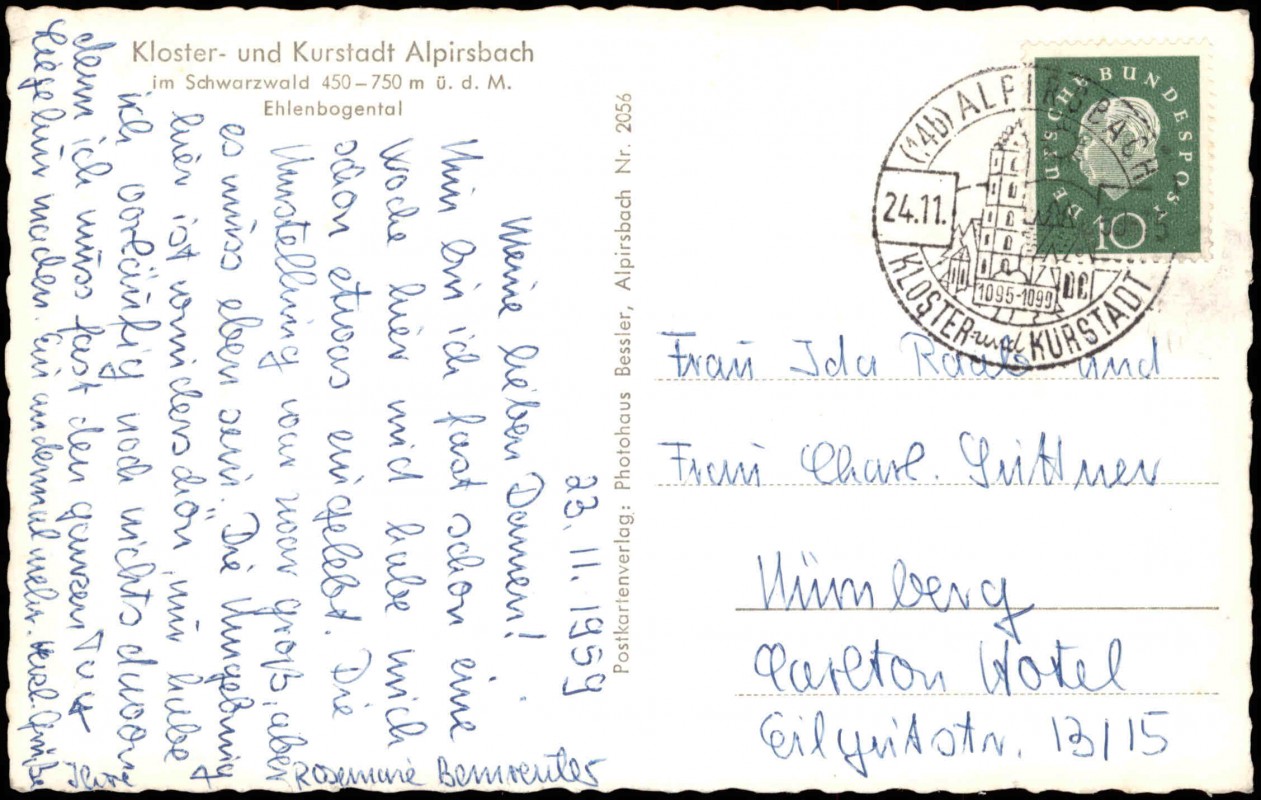 Kloster- und Kurstadt Alpirsbach
im Schwarzwald 450–750 m ü. d. M.
Ehlenbogental
23. 11. 1959
Meine lieben Damen!
Nun bin ich fast schon eine
Woche hier und habe mich
schon etwas eingelebt. Die
Umstellung war zwar groß, aber
es muss eben sein. Die Umgebung
hier ist wunderschön, nur habe
ich vorläufig noch nichts davon
denn ich muss fast den ganzen Tag
Liegekur machen. Ein andermal mehr. Herzl. Grüße
Ihre Rosemarie
Postkartenverlag: Photohaus Bessler, Alpirsbach Nr. 2056
DEUTSCHE BUNDESPOST
10
(14b) ALPIRSBACH
24.11.
1095-1099
KLOSTER- und KURSTADT
Frau Ida Raab und
Frau Charl. Süttner
Nürnberg
Carlton Hotel
Eilgutstr. 13/15